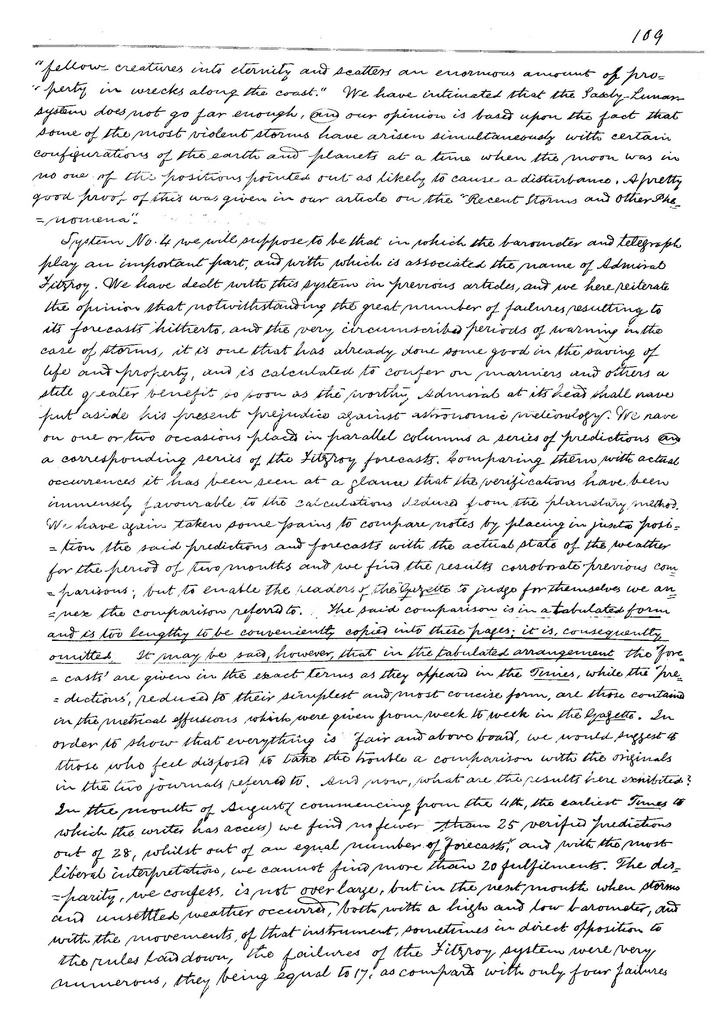 109
"fellow-creatures into eternity and scatters an enormous amount of pro=
"=perty in wrecks along the coast." We have intimated that the Saxby-Lunar
system does not go far enough, and our opinion is based upon the fact that
some of the most violent storms have arisen simultaneously with certain
configurations of the earth and planets at a time when the moon was in
no one of the positions pointed out as likely to cause a disturbance. A pretty
good proof of this was given in our article on the "Recent Storms and Other Phe=
=nomena".
System No. 4 we will suppose to be that in which the barometer and telegraph
play an important part, and with which is associated the name of Admiral
Fitzroy. We have dealt with this system in previous articles, and we here reiterate
the opinion that notwithstanding the great number of failures resulting to
its forecasts hitherto, and the very circumscribed periods of warning in the
case of storms, it is one that has already done some good in the saving of
life and property, and is calculated to confer on mariners and others a
still greater benefit so soon as the worthy Admiral at its head shall have
put aside his present prejudice against astronomic meteorology. We have
on one or two occasions placed in parallel columns a series of predictions and
a corresponding series of the Fitzroy forecasts. Comparing them with actual
occurrences it has been seen at a glance that the verifications have been
immensely favourable to the calculations deduced from the planetary method.
We have again taken some pains to compare notes by placing in juxta posi=
=tion the said predictions and forecasts with the actual state of the weather
for the period of two months and we find the results corroborate previous com=
=parisons; but to enable the readers of the Gazette to judge for themselves we an=
=nex the comparison referred to. The said comparison is in a tabulated form
and is too lengthy to be conveniently copied into these pages; it is, consequently
omitted. It may be said, however, that in the tabulated arrangement the 'fore=
=casts' are given in the exact terms as they appeared in the Times, while the 'pre=
=dictions', reduced to their simplest and most concise form, are those contained
in the metrical effusions which were given from week to week in the Gazette. In
order to show that everything is 'fair and above board', we would suggest to
those who feel disposed to take the trouble a comparison with the originals
in the two journals referred to. And now, what are the results here exhibited?
In the month of August (commencing from the 4th, the earliest Times to
which the writer has access) we find no fewer than 25 verified predictions
out of 28, whilst out of an equal number of "forecasts", and with the most
liberal interpretation, we cannot find more than 20 fulfilments. The dis=
=parity, we confess, is not over large, but in the next month when storms
and unsettled weather occurred, both with a high and low barometer, and
with the movements of that instrument, sometimes in direct opposition to
the rules laid down, the failures of the Fitzroy system were very
numerous, they being equal to 17, as compared with only four failures